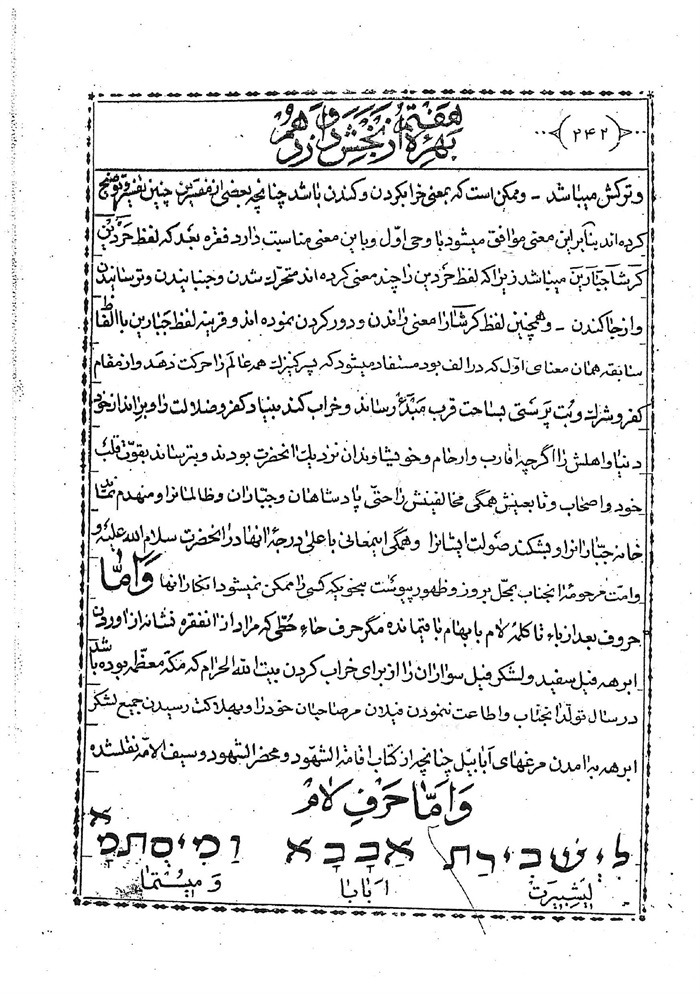 هفتم از بخش دوازدهم بهره
(۲۴۲)
و ترکش میباشد - و ممکن است که بمعنی خرابکردن و کندن باشد چنانچه بعضی از مفسرین چنین تفسیر و توضیح
کرده اند بنا بر این معنی موافق میشود با وحی اول و با این معنی مناسبت دارد فقره بعد که لفظ حردین
کرشا جبارین میباشد زیرا که لفظ حردین را چند معنی کرده اند متحرك شدن و جنبانیدن و ترسانیدن
و از جا کندن - و همچنین لفظ کرشا را معنی راندن و دور کردن نموده اند و قرینه لفظ جبارین با الفاظ
سابقه همان معنای اول که در الف بود مستفاد میشود که پسر کنیزك همه عالم را حرکت دهد و از مقام
کفر و شرك و بت پرستی بساحت قرب مبدء رساند و خراب کند بنیاد کفر و ضلالت را و براندازد خود
دنیا و اهلش را اگرچه اقارب و ارحام و خویشاوندان نزدیك انحضرت بودند و بترساند بقوت قلب
خود و اصحاب و تابعینش همگی مخالفینش را حتی پادشاهان و جباران و ظالمانرا و منهدم نماید
خانه جبارانرا و بشکند صولت ایشانرا و همگی اینمعانی با علی درجهٔ انها در انحضرت سلام الله علیه و
و امت مرحومهٔ انجناب بمحل بروز و ظهور پیوست بنحویکه کسی را ممکن نمیشود انکار انها وَ اَمّا
حروف بعد از باء تا کلمهٔ لام با بهام باقیمانده مگر حرف حاء حطّی که مراد از انفقره نشانه از اوردن
ابرهه فیل سفید و لشکر فیل سواران را از برای خراب کردن بیت الله الحرام که مکه معظمه بوده باشد
در سال تولد انجناب و اطاعت ننمودن فیلان مر صاحبان خود را و بهلاکت رسیدن جمیع لشکر
ابرهه به امدن مرغهای ابابیل چنانچه از کتاب اقامة الشهود و محضر الشهود و سیف الامه نقلشده
وَ اَمّا حَرفِ لام
לִישְׁבִירַת אַבָבָא וּמִיסְתְמָא
لیشبیرت ابابا و میستما